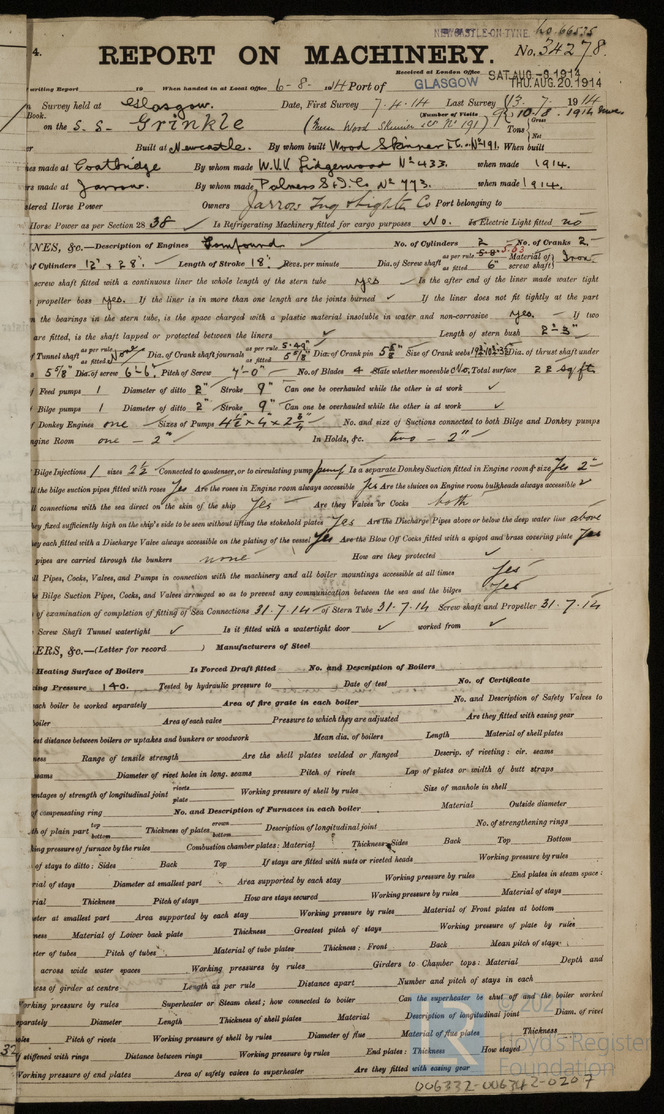 NEWCASTLE-ON-TYNE. No. 66535
4. REPORT ON MACHINERY. No. 34278.
Received at London Office SAT. AUG. -8. 1914
THU. AUG. 20. 1914
writing Report 19 When handed in at Local Office 6-8-1914 Port of GLASGOW
Survey held at Glasgow. Date, First Survey 7.4.14 Last Survey 13. 7. 1914
Book. (Number of Visits 10.8.1914
on the S.S. Grinkle (Messrs Wood Skinner No 191) Tons Gross Net
Built at Newcastle. By whom built Wood Skinner & Co. No 191. When built
nes made at Coatbridge By whom made W.V.V. Lidgerwood No 433. when made 1914.
rs made at Jarrow. By whom made Palmers S & I. Co No 773. when made 1914.
stered Horse Power Owners Jarrow Tug & Lighter Co Port belonging to
Horse Power as per Section 28 38 Is Refrigerating Machinery fitted for cargo purposes No. Is Electric Light fitted no
NES, &c.—Description of Engines Compound No. of Cylinders 2 No. of Cranks 2
of Cylinders 12" x 28" Length of Stroke 18" Revs. per minute Dia. of Screw shaft as per rule as fitted 6" Material of screw shaft Iron
screw shaft fitted with a continuous liner the whole length of the stern tube yes Is the after end of the liner made water tight
propeller boss yes. If the liner is in more than one length are the joints burned ✓ If the liner does not fit tightly at the part
n the bearings in the stern tube, is the space charged with a plastic material insoluble in water and non-corrosive yes. If two
are fitted, is the shaft lapped or protected between the liners ✓ Length of stern bush 2'-3"
Tunnel shaft as per rule as fitted None Dia. of Crank shaft journals as per rule 5.49" as fitted 5 5/8" Dia. of Crank pin 5 5/8" Size of Crank webs Dia. of thrust shaft under
5 7/8" Dia. of screw 6'-6" Pitch of Screw 7'-0" No. of Blades 4 State whether moveable No. Total surface 22 sq ft.
f Feed pumps 1 Diameter of ditto 2" Stroke 9" Can one be overhauled while the other is at work ✓
f Bilge pumps 1 Diameter of ditto 2" Stroke 9" Can one be overhauled while the other is at work ✓
f Donkey Engines one Sizes of Pumps 4 1/2" x 4" x 2 3/4" No. and size of Suctions connected to both Bilge and Donkey pumps
ngine Room one - 2" In Holds, &c. two - 2"
Bilge Injections 1 sizes 2 1/2 Connected to condenser, or to circulating pump pump Is a separate Donkey Suction fitted in Engine room & size Yes 2"
ll the bilge suction pipes fitted with roses Yes Are the roses in Engine room always accessible Yes Are the sluices on Engine room bulkheads always accessible ✓
ll connections with the sea direct on the skin of the ship Yes Are they Valves or Cocks both
hey fixed sufficiently high on the ship's side to be seen without lifting the stokehold plates Yes Are the Discharge Pipes above or below the deep water line above
hey each fitted with a Discharge Valve always accessible on the plating of the vessel Yes Are the Blow Off Cocks fitted with a spigot and brass covering plate Yes
pipes are carried through the bunkers none How are they protected ✓
ll Pipes, Cocks, Valves, and Pumps in connection with the machinery and all boiler mountings accessible at all times Yes
he Bilge Suction Pipes, Cocks, and Valves arranged so as to prevent any communication between the sea and the bilges Yes
of examination of completion of fitting of Sea Connections 31.7.14 of Stern Tube 31.7.14 Screw shaft and Propeller 31.7.14
Screw Shaft Tunnel watertight ✓ Is it fitted with a watertight door ✓ worked from ✓
ERS, &c.—(Letter for record ) Manufacturers of Steel
Heating Surface of Boilers Is Forced Draft fitted No. and Description of Boilers
ing Pressure 140. Tested by hydraulic pressure to Date of test No. of Certificate
each boiler be worked separately Area of fire grate in each boiler No. and Description of Safety Valves to
boiler Area of each valve Pressure to which they are adjusted Are they fitted with easing gear
est distance between boilers or uptakes and bunkers or woodwork Mean dia. of boilers Length Material of shell plates
ness Range of tensile strength Are the shell plates welded or flanged Descrip. of riveting: cir. seams
seams Diameter of rivet holes in long. seams Pitch of rivets Lap of plates or width of butt straps
entages of strength of longitudinal joint rivets plate Working pressure of shell by rules Size of manhole in shell
of compensating ring No. and Description of Furnaces in each boiler Material Outside diameter
th of plain part top bottom Thickness of plates crown bottom Description of longitudinal joint No. of strengthening rings
king pressure of furnace by the rules Combustion chamber plates: Material Thickness: Sides Back Top Bottom
of stays to ditto: Sides Back Top If stays are fitted with nuts or riveted heads Working pressure by rules
rial of stays Diameter at smallest part Area supported by each stay Working pressure by rules End plates in steam space:
rial Thickness Pitch of stays How are stays secured Working pressure by rules Material of stays
eter at smallest part Area supported by each stay Working pressure by rules Material of Front plates at bottom
ness Material of Lower back plate Thickness Greatest pitch of stays Working pressure of plate by rules
eter of tubes Pitch of tubes Material of tube plates Thickness: Front Back Mean pitch of stays
across wide water spaces Working pressures by rules Girders to Chamber tops: Material Depth and
ness of girder at centre Length as per rule Distance apart Number and pitch of stays in each
Working pressure by rules Superheater or Steam chest; how connected to boiler Can the superheater be shut off and the boiler worked
eparately Diameter Length Thickness of shell plates Material Description of longitudinal joint Diam. of rivet
oles Pitch of rivets Working pressure of shell by rules Diameter of flue Material of flue plates Thickness
If stiffened with rings Distance between rings Working pressure by rules End plates: Thickness How stayed
Working pressure of end plates Area of safety valves to superheater Are they fitted with easing gear
© 2021
Lloyd's Register
Foundation
006332-006342-0207